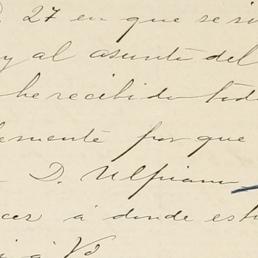 27 en que se si
y al asunto del
he recibido tod
emente por que
D. Ulpiano
ces á donde est
i á Vd